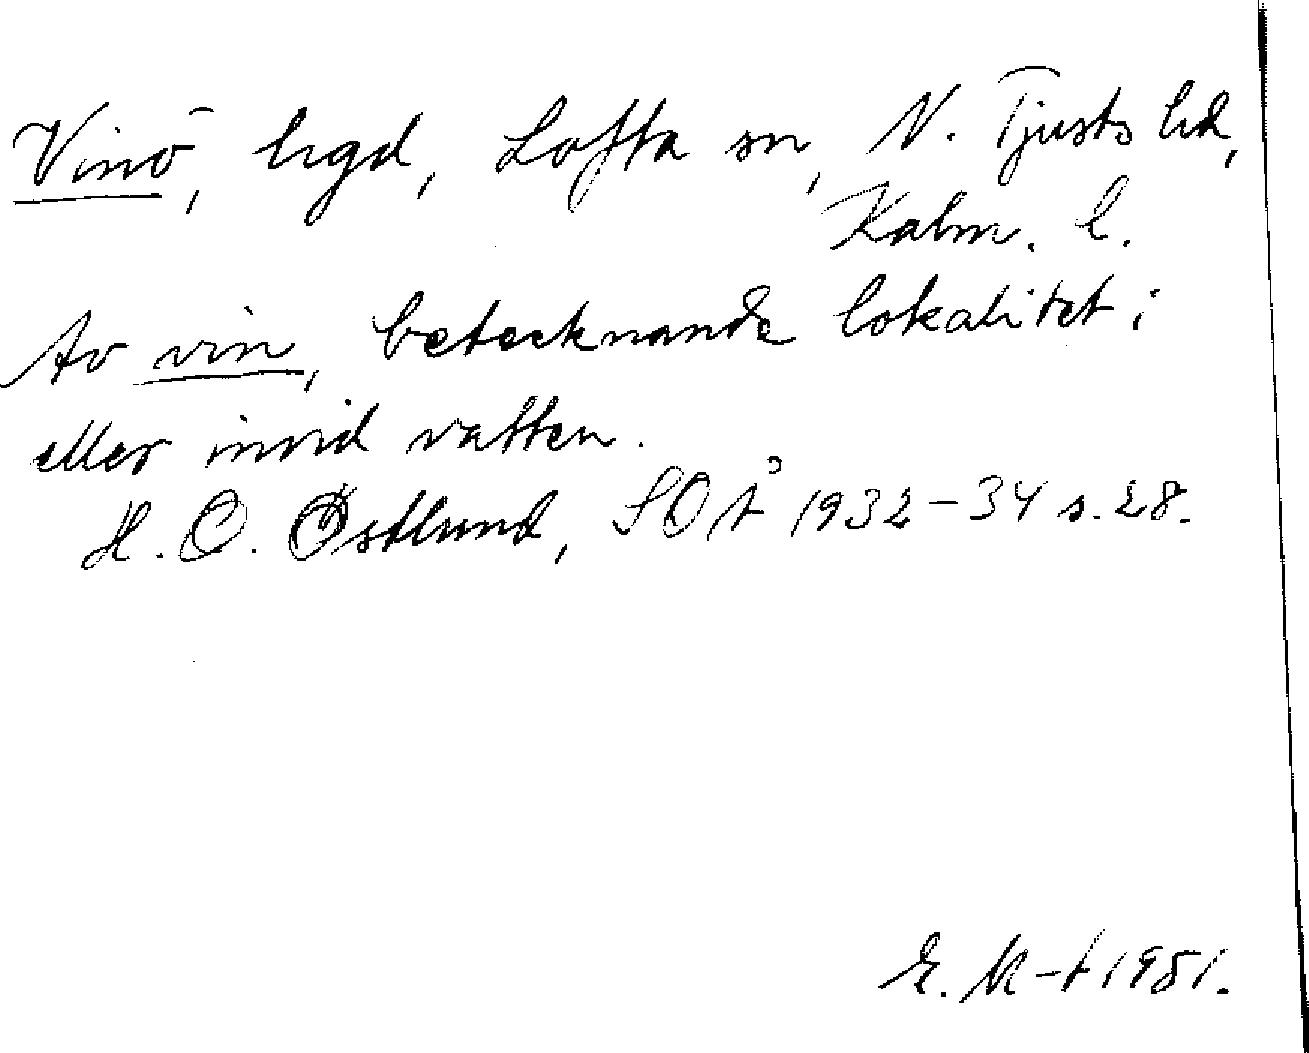 Vinö, hgd, Lofta sn, N. Tjusts hd,
Kalm. l.
Av vin, betecknande lokalitet i
eller invid vatten.
H. O. Östlund, SOÅ 1932-34 s. 28.
E. M-t 1951.